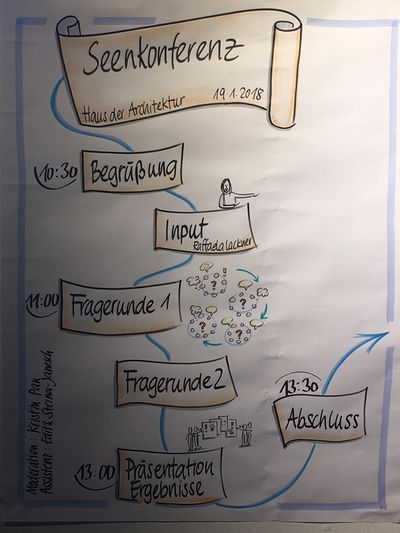 Seenkonferenz
Haus der Architektur 19.1.2018
10:30 Begrüßung
Input
Raffaela Lackner
11:00 Fragerunde 1
? ? ? ?
Fragerunde 2
13:30
Abschluss
13:00 Präsentation
Ergebnisse
Moderation: Kristin Pan
Assistenz: Edith